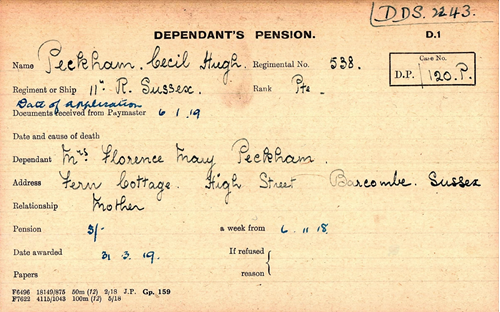 DDS. 2243.
DEPENDANT'S PENSION. D.1
Name Peckham. Cecil Hugh. Regimental No. 538.
Case No.
D.P. 120.P.
Regiment or Ship 11th R. Sussex. Rank Pte
Date of Application
Documents received from Paymaster 6 1 19
Date and cause of death
Dependant Mrs Florence May Peckham.
Address Fern Cottage. High Street Barcombe. Sussex
Relationship Mother
Pension 5/- a week from 6 11 18.
Date awarded 31 3 19. If refused
Papers reason
F6496 18149/875 50m (12) 2/18 J.P. Gp. 159
F7622 4115/1043 100m (12) 5/18